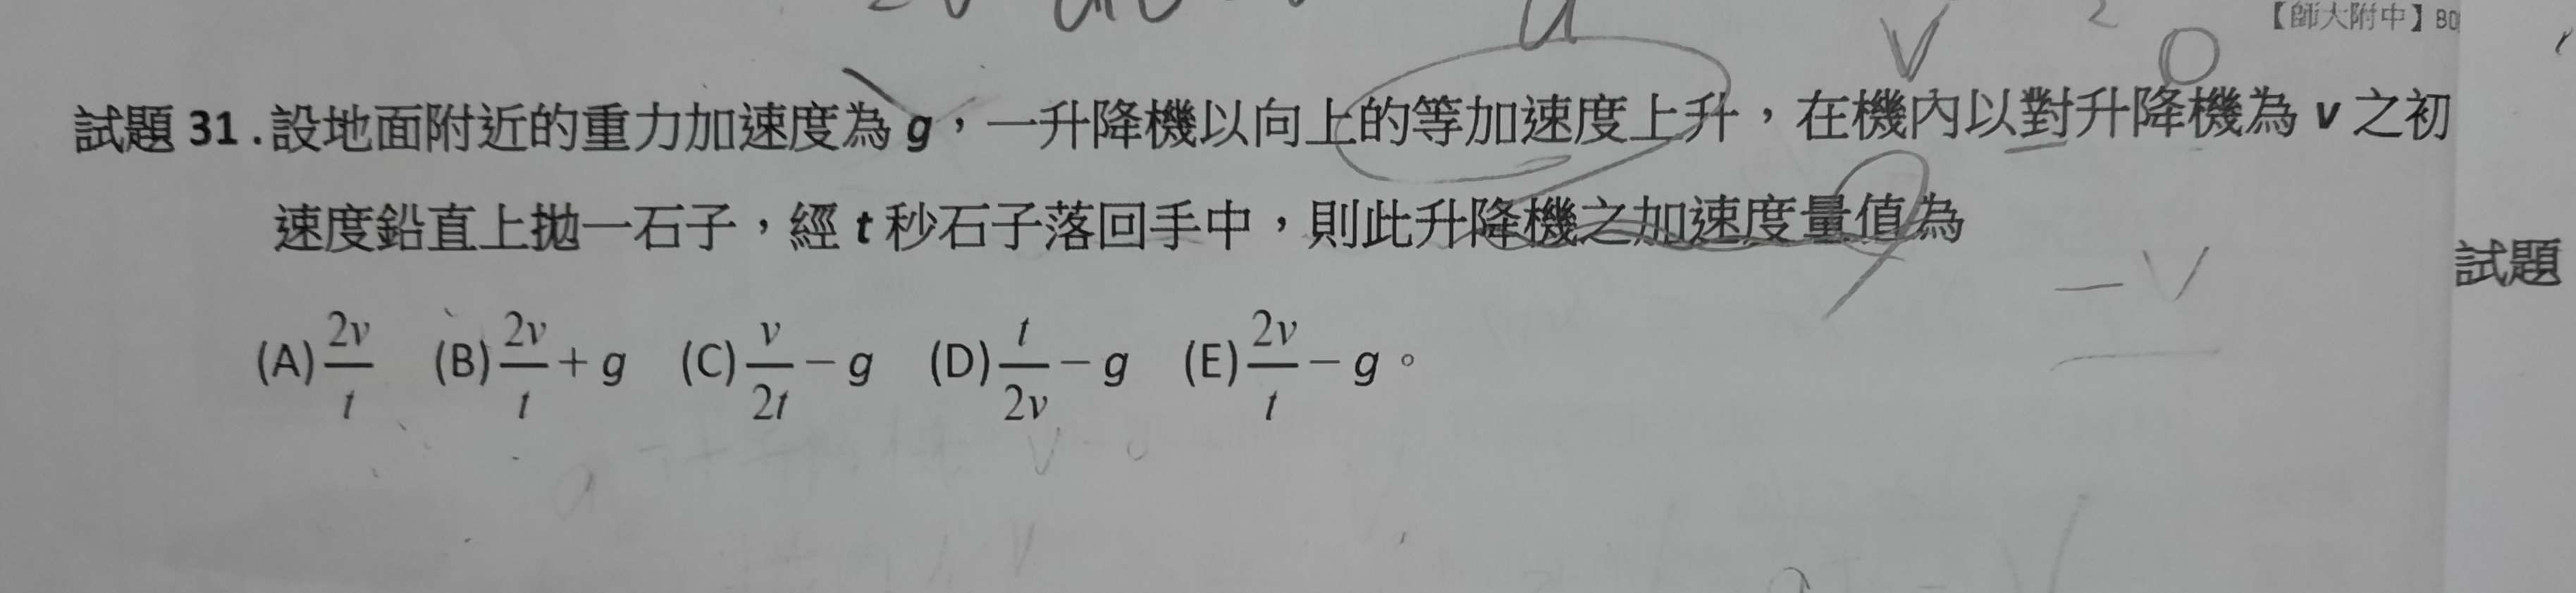 【師大附中】
試題 31.設地面附近的重力加速度為 g,一升降機以向上的等加速度上升,在機內以對升降機為 v 之初
速度鉛直上拋一石子,經 t 秒石子落回手中,則此升降機之加速度量值為
試題
(A) 2v/t (B) 2v/t + g (C) v/2t − g (D) t/2v − g (E) 2v/t − g。